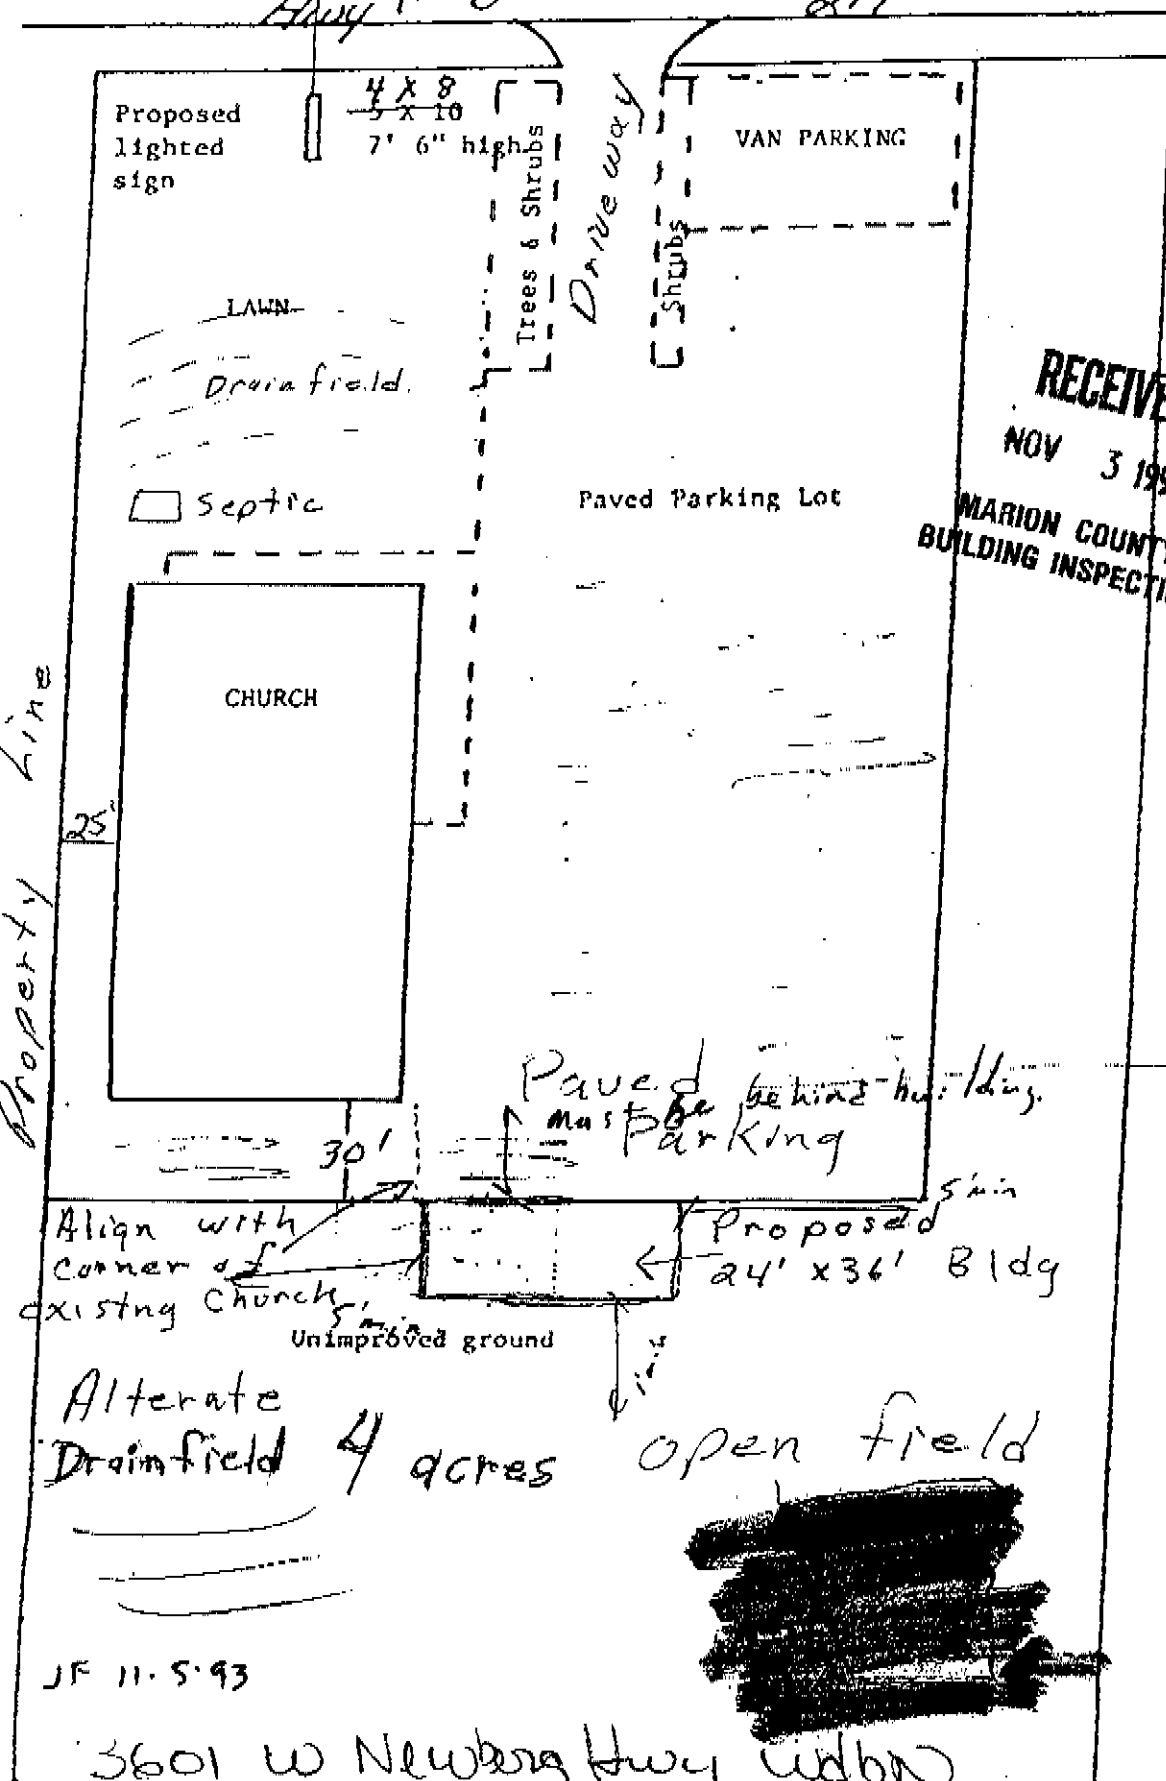 Hwy
219
Proposed
lighted
sign
4 X 8
5 X 10
7' 6" high
Trees & Shrubs
Driveway
Shrubs
VAN PARKING
LAWN
Drainfield
Septic
Paved Parking Lot
RECEIVE
NOV 3 199
MARION COUNTY
BUILDING INSPECTI
CHURCH
Property Line
25'
Paved
Must be behind building.
Parking
30'
5' min
Align with
corner of
existng Church
Proposed
24' x 36' Bldg
5' min
Unimproved ground
Alterate
Drainfield
4 acres
open field
JF 11.5.93
3601 W Newberg Hwy Wdbn